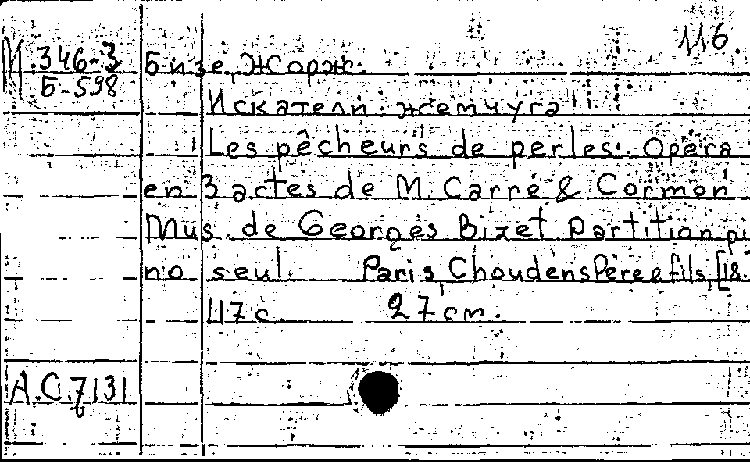 116.
М.346-3 Бизе, Жорж.
Б-598
Искатели жемчуга
Les pêcheurs de perles. Opéra
en 3 actes de M. Carré & Cormon
Mus. de Georges Bizet Partition pi
no seul. Paris, Choudens Père e fils, [18
117 с. 27 cm.
A.C.7131